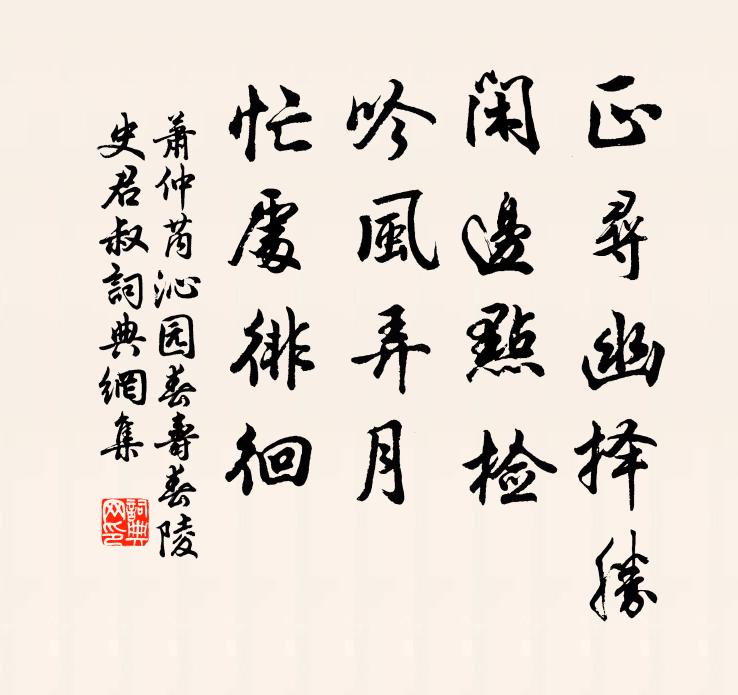 正尋幽择勝
閑邊點檢
吟風弄月
忙處徘徊
蕭仲芮沁园春壽春陵
史君叔詞典網集
詞典网印